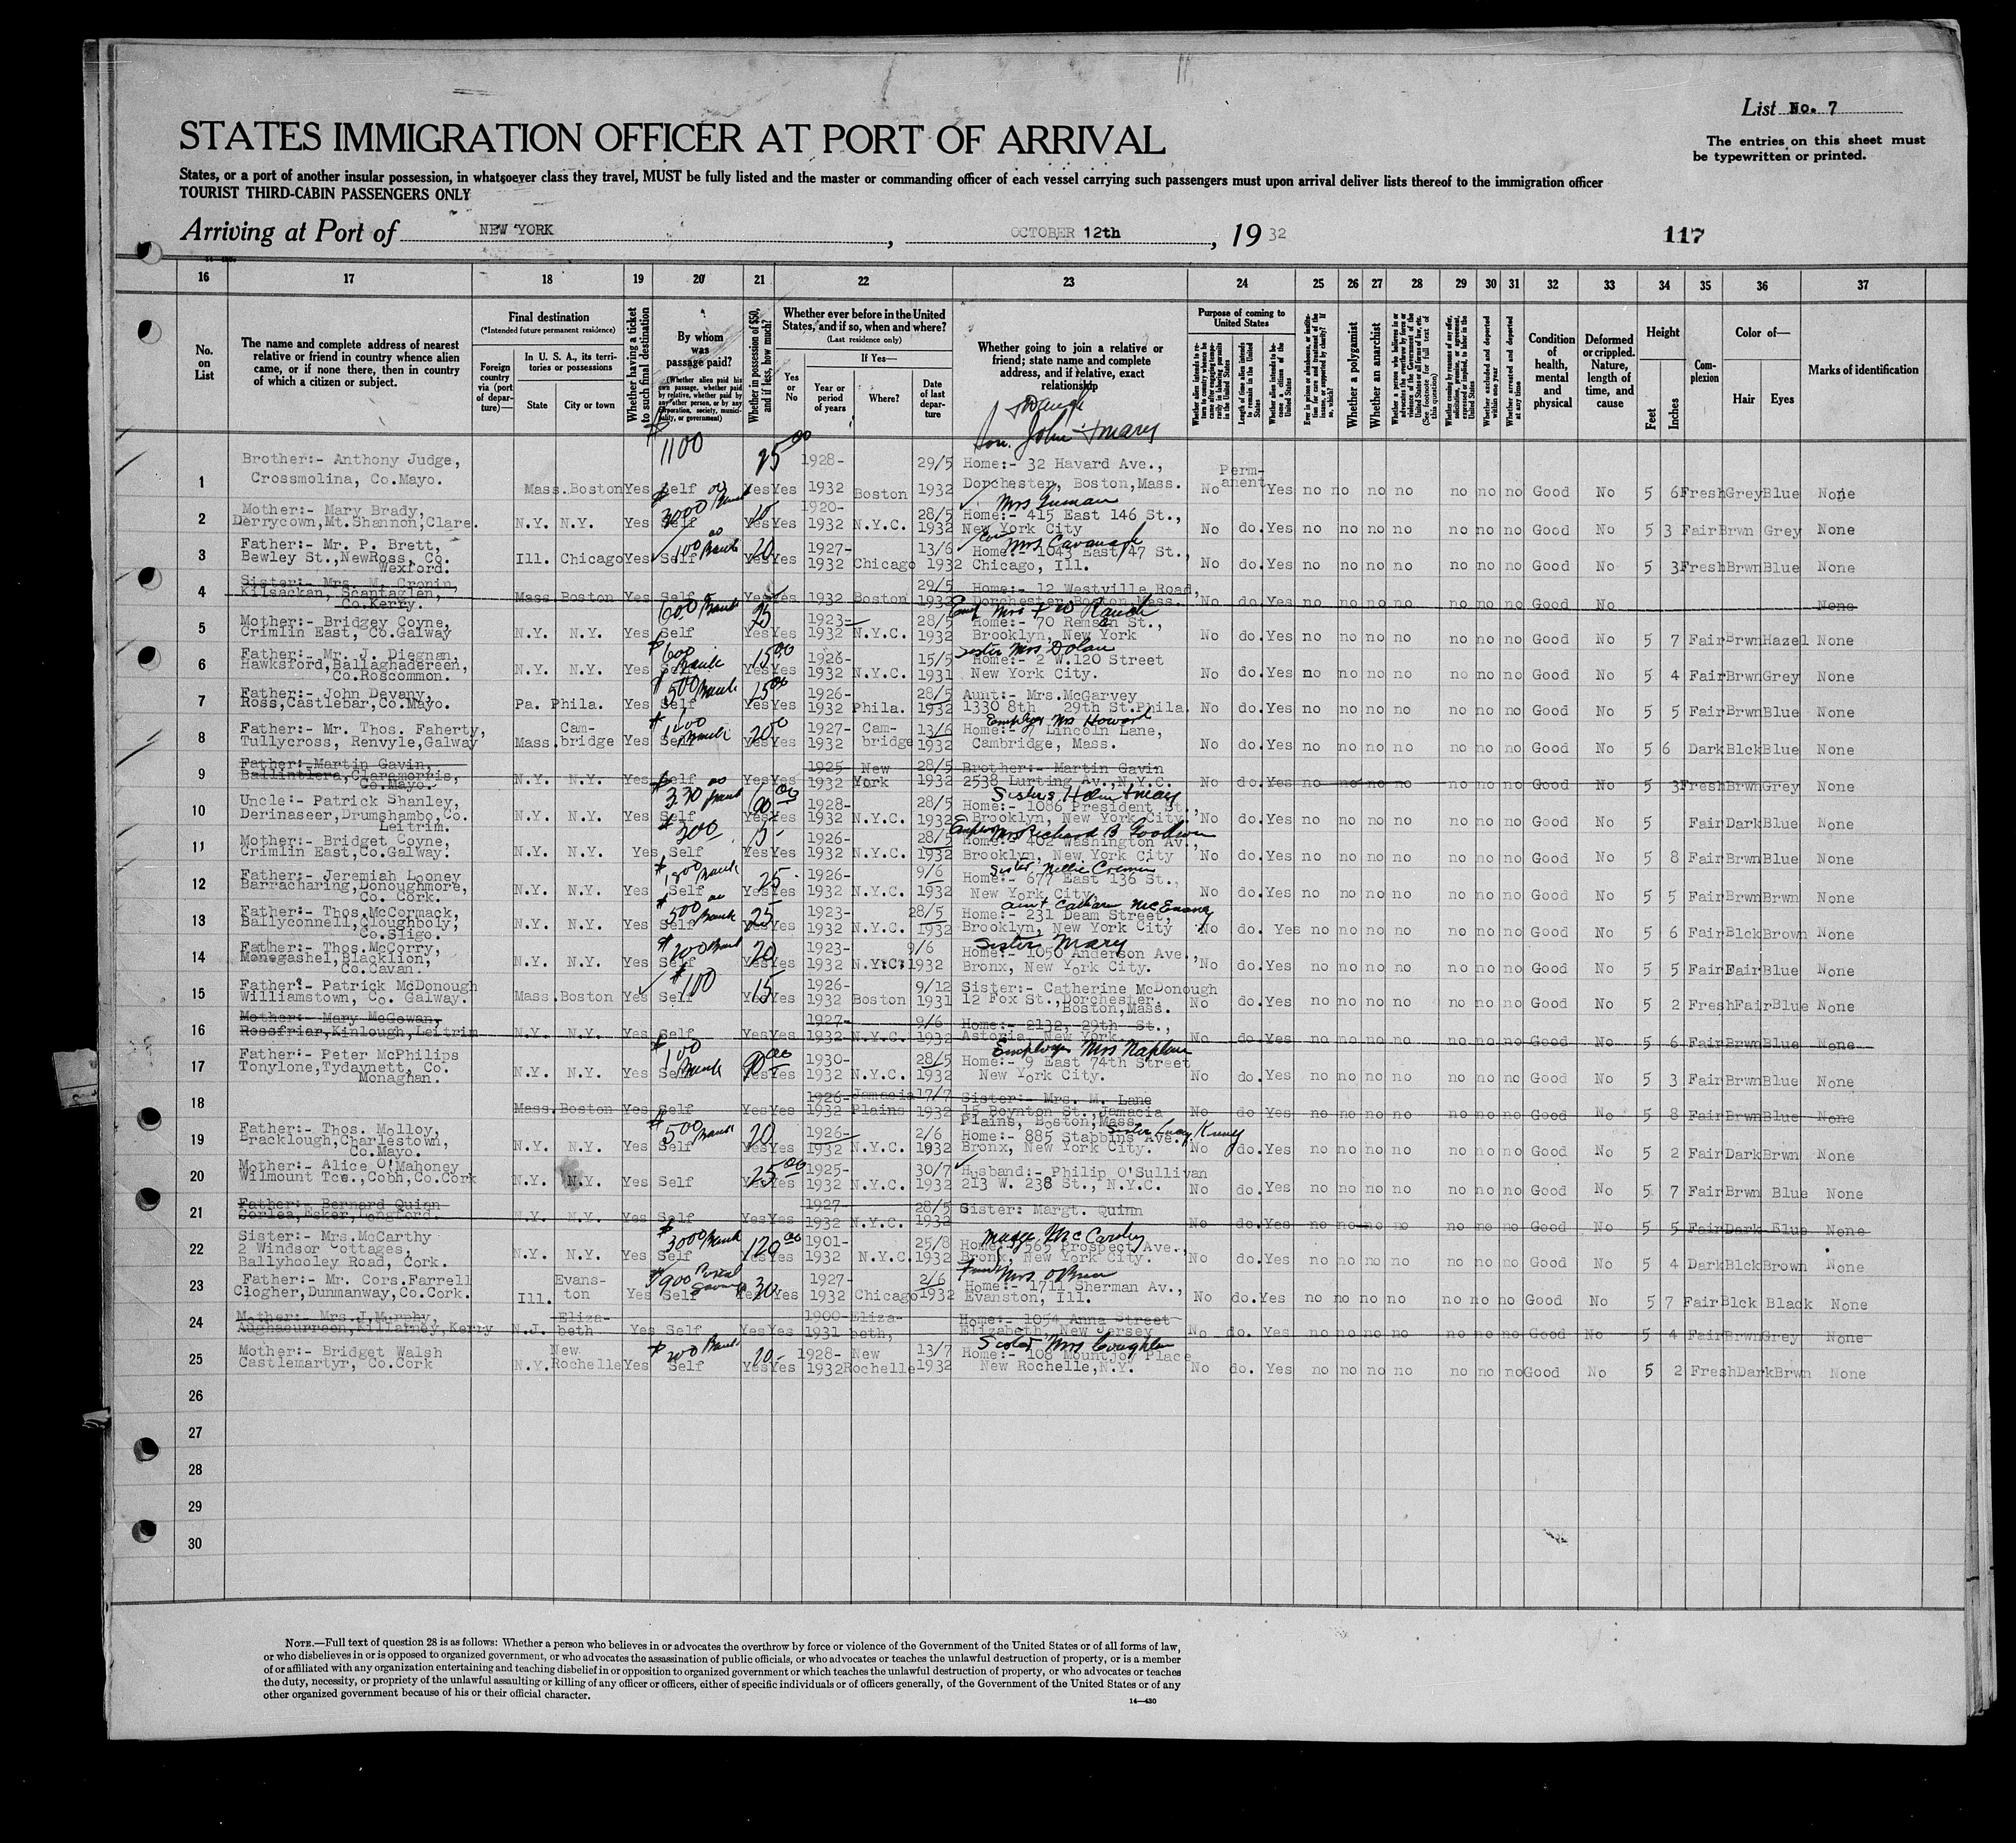 List No. 7
STATES IMMIGRATION OFFICER AT PORT OF ARRIVAL
The entries on this sheet must
be typewritten or printed.
States, or a port of another insular possession, in whatsoever class they travel, MUST be fully listed and the master or commanding officer of each vessel carrying such passengers must upon arrival deliver lists thereof to the immigration officer
TOURIST THIRD-CABIN PASSENGERS ONLY
Arriving at Port of NEW YORK, OCTOBER 12th, 19 32
117
16 17 18 19 20 21 22 23 24 25 26 27 28 29 30 31 32 33 34 35 36 37
No. on List
The name and complete address of nearest relative or friend in country whence alien came, or if none there, then in country of which a citizen or subject.
Final destination
(*Intended future permanent residence)
Foreign country via (port of departure)—
In U. S. A., its territories or possessions
State
City or town
Whether having a ticket to such final destination
By whom was passage paid?
(Whether alien paid his own passage, whether paid by relative, whether paid by any other person, or by any corporation, society, municipality, or government)
Whether in possession of $50, and if less, how much?
Whether ever before in the United States, and if so, when and where?
(Last residence only)
Yes or No
If Yes—
Year or period of years
Where?
Date of last departure
Whether going to join a relative or friend; state name and complete address, and if relative, exact relationship
Purpose of coming to United States
Length of time alien intends to remain in the United States
Whether alien intends to become a citizen of the United States
Whether a polygamist
Whether an anarchist
Whether excluded and deported within one year
Whether arrested and deported at any time
Condition of health, mental and physical
Deformed or crippled. Nature, length of time, and cause
Height
Feet
Inches
Complexion
Color of—
Hair
Eyes
Marks of identification
$1100 25 00 Son John + Mary
1 Brother:- Anthony Judge, Crossmolina, Co.Mayo. Mass. Boston Yes Self Yes Yes 1928-1932 Boston 29/5 1932 Home:- 32 Havard Ave., Dorchester, Boston,Mass. No Permanent Yes no no no no no no no Good No 5 6 Fresh Grey Blue None
2 Mother:- Mary Brady, Derrycown,Mt.Shannon,Clare. N.Y. N.Y. Yes Self Yes Yes 1920-1932 N.Y.C. 28/5 1932 Home:- 415 East 146 St., New York City No do. Yes no no no no no no no Good No 5 3 Fair Brwn Grey None
3 Father:- Mr. P. Brett, Bewley St.,NewRoss, Co. Wexford. Ill. Chicago Yes Self 20 Yes Yes 1927-1932 Chicago 13/6 1932 Mrs Cavanagh Home:- 1043 East 47 St., Chicago, Ill. No do. Yes no no no no no no no Good No 5 3 Fresh Brwn Blue None
4 Sister:- Mrs. M. Cronin, Kilsackan, Scantaglen, Co.Kerry. Mass Boston Yes Self Yes Yes 1932 Boston 29/5 1932 Home:- 12 Westville Road, Dorchester Boston Mass. No do. Yes no no no no no no no Good No None
5 Mother:- Bridgey Coyne, Crimlin East, Co.Galway N.Y. N.Y. Yes Self 600 Bank 25 Yes Yes 1923-1932 N.Y.C. 28/5 1932 Home:- 70 Remsen St., Brooklyn, New York No do. Yes no no no no no no no Good No 5 7 Fair Brwn Hazel None
6 Father:- Mr. J. Diegnan, Hawksford,Ballaghadereen, Co.Roscommon. N.Y. N.Y. Yes Self $600 Bank 15 00 Yes Yes 1926-1932 N.Y.C. 15/5 1931 Sister Mrs Dolan Home:- 2 W.120 Street New York City. No do. Yes no no no no no no no Good No 5 4 Fair Brwn Grey None
7 Father:- John Devany, Ross,Castlebar,Co.Mayo. Pa. Phila. Yes Self $500 Bank 15 00 Yes Yes 1926-1932 Phila. 28/5 1932 Aunt:- Mrs.McGarvey 1330 8th 29th St.Phila. No do. Yes no no no no no no no Good No 5 5 Fair Brwn Blue None
8 Father:- Mr. Thos. Faherty, Tullycross, Renvyle,Galway Mass. Cambridge Yes Self Bank 20 00 Yes Yes 1927-1932 Cambridge 13/6 1932 Employer Mrs Howard Home:- 7 Lincoln Lane, Cambridge, Mass. No do. Yes no no no no no no no Good No 5 6 Dark Blck Blue None
9 Father:-Martin Gavin, Ballintlera,Claremorris, Co.Mayo. N.Y. N.Y. Yes Self Yes Yes 1925-1932 New York 28/5 1932 Brother:- Martin Gavin 2538 Lurting Av.,N.Y.C. No do. Yes no no no no no no no Good No 5 3 Fresh Brwn Grey None
10 Uncle:- Patrick Shanley, Derinaseer,Drumshambo,Co. Leitrim. N.Y. N.Y. Yes Self Yes Yes 1928-1932 N.Y.C. 28/5 1932 Sisters Helen + Mary Home:- 1086 President St., Brooklyn, New York City. No do. Yes no no no no no no no Good No 5 Fair Dark Blue None
11 Mother:- Bridget Coyne, Crimlin East,Co.Galway. N.Y. N.Y. Yes Self $300 15 Yes Yes 1926-1932 N.Y.C. 28/5 1932 Mrs Richard B Goodwin Home:- 402 Washington Av., Brooklyn, New York City No do. Yes no no no no no no no Good No 5 8 Fair Brwn Blue None
12 Father:- Jeremiah Looney Barracharing,Donoughmore, Co. Cork. N.Y. N.Y. Yes Self Bank 25 Yes Yes 1926-1932 N.Y.C. 9/6 1932 Sister Nellie Cremin Home:- 677 East 136 St., New York City. No do. Yes no no no no no no no Good No 5 5 Fair Brwn Brwn None
13 Father:- Thos.McCormack, Ballyconnell,Cloughboly, Co.Sligo. N.Y. N.Y. Yes Self $500 Bank 25 Yes Yes 1923-1932 N.Y.C. 28/5 1932 Aunt Home:- 231 Deam Street, Brooklyn, New York City No do. Yes no no no no no no no Good No 5 6 Fair Blck Brown None
14 Father:- Thos.McCorry, Monegashel,Blacklion, Co.Cavan. N.Y. N.Y. Yes Self $200 Bank 20 Yes Yes 1923-1932 N.Y.C. 9/6 1932 Sister Mary Home:- 1050 Anderson Ave., Bronx, New York City. No do. Yes no no no no no no no Good No 5 5 Fair Fair Blue None
15 Father:- Patrick McDonough Williamstown, Co. Galway. Mass. Boston Yes Self $100 15 Yes Yes 1926-1932 Boston 9/12 1931 Sister:- Catherine McDonough 12 Fox St.,Dorchester, Boston,Mass. No do. Yes no no no no no no no Good No 5 2 Fresh Fair Blue None
16 Mother:- Mary McGowan, Rossfriar,Kinlough,Leitrim N.Y. N.Y. Yes Self Yes Yes 1927-1932 N.Y.C. 9/6 1932 Home:- 2132, 29th St., Astoria, New York. No do. Yes no no no no no no no Good No 5 6 Fair Brwn Blue None
17 Father:- Peter McPhilips Tonylone,Tydavnett, Co. Monaghan. N.Y. N.Y. Yes Self $100 Bank Yes Yes 1930-1932 N.Y.C. 28/5 1932 Employer Mrs Home:- 9 East 74th Street New York City. No do. Yes no no no no no no no Good No 5 3 Fair Brwn Blue None
18 Mass. Boston Yes Self Yes Yes 1926-1932 Jamacia Plains 17/7 1932 Sister:- Mrs. M. Lane 15 Boynton St.,Jamacia Plains, Boston,Mass. No do Yes no no no no no no no Good No 5 8 Fair Brwn Blue None
19 Father:- Thos. Molloy, Bracklough,Charlestown, Co.Mayo. N.Y. N.Y. Yes Self $500 Bank 20 Yes Yes 1926-1932 N.Y.C. 2/6 1932 Home:- 885 Stabbins Ave., Bronx, New York City. No do. Yes no no no no no no no Good No 5 2 Fair Dark Brwn None
20 Mother:- Alice O'Mahoney Wilmount Tce.,Cobh,Co.Cork N.Y. N.Y. Yes Self 25 00 Yes 1925-1932 N.Y.C. 30/7 1932 Husband:- Philip O'Sullivan 213 W. 238 St., N.Y.C. No do. Yes no no no no no no no Good No 5 7 Fair Brwn Blue None
21 Father:- Bernard Quinn Corlea,Esker,Longford. N.Y. N.Y. Yes Self Yes Yes 1927-1932 N.Y.C. 28/5 1932 Sister: Margt. Quinn No do. Yes no no no no no no no Good No 5 5 Fair Dark Blue None
22 Sister:- Mrs.McCarthy 2 Windsor Cottages, Ballyhooley Road, Cork. N.Y. N.Y. Yes Self $3000 Bank 120 00 Yes Yes 1901-1932 N.Y.C. 25/8 1932 Home:- 565 Prospect Ave., Bronx, New York City. No do. Yes no no no no no no no Good No 5 4 Dark Blck Brown None
23 Father:- Mr. Cors.Farrell Clogher,Dunmanway,Co.Cork. Ill. Evanston Yes Self $900 Postal Savings 30 Yes Yes 1927-1932 Chicago 2/6 1932 Friend Mrs O'Brien Home:- 1711 Sherman Av., Evanston, Ill. No do. Yes no no no no no no no Good No 5 7 Fair Blck Black None
24 Mother:- Mrs.J.Murphy, Aughacurreen,Killarney,Kerry N.J. Elizabeth Yes Self Yes Yes 1900-1931 Elizabeth, Home:- 1054 Anna Street Elizabeth, New Jersey No do. Yes no no no no no no no Good No 5 4 Fair Brwn Grey None
25 Mother:- Bridget Walsh Castlemartyr, Co.Cork N.Y. New Rochelle Yes Self Bank 10- Yes Yes 1928-1932 New Rochelle 13/7 1932 Sister Mrs Coughlan Home:- 108 Mountjoy Place New Rochelle,N.Y. No do. Yes no no no no no no no Good No 5 2 Fresh Dark Brwn None
26
27
28
29
30
NOTE.—Full text of question 28 is as follows: Whether a person who believes in or advocates the overthrow by force or violence of the Government of the United States or of all forms of law,
or who disbelieves in or is opposed to organized government, or who advocates the assassination of public officials, or who advocates or teaches the unlawful destruction of property, or is a member
of or affiliated with any organization entertaining and teaching disbelief in or opposition to organized government or which teaches the unlawful destruction of property, or who advocates or teaches
the duty, necessity, or propriety of the unlawful assaulting or killing of any officer or officers, either of specific individuals or of officers generally, of the Government of the United States or of any
other organized government because of his or their official character.
14—430